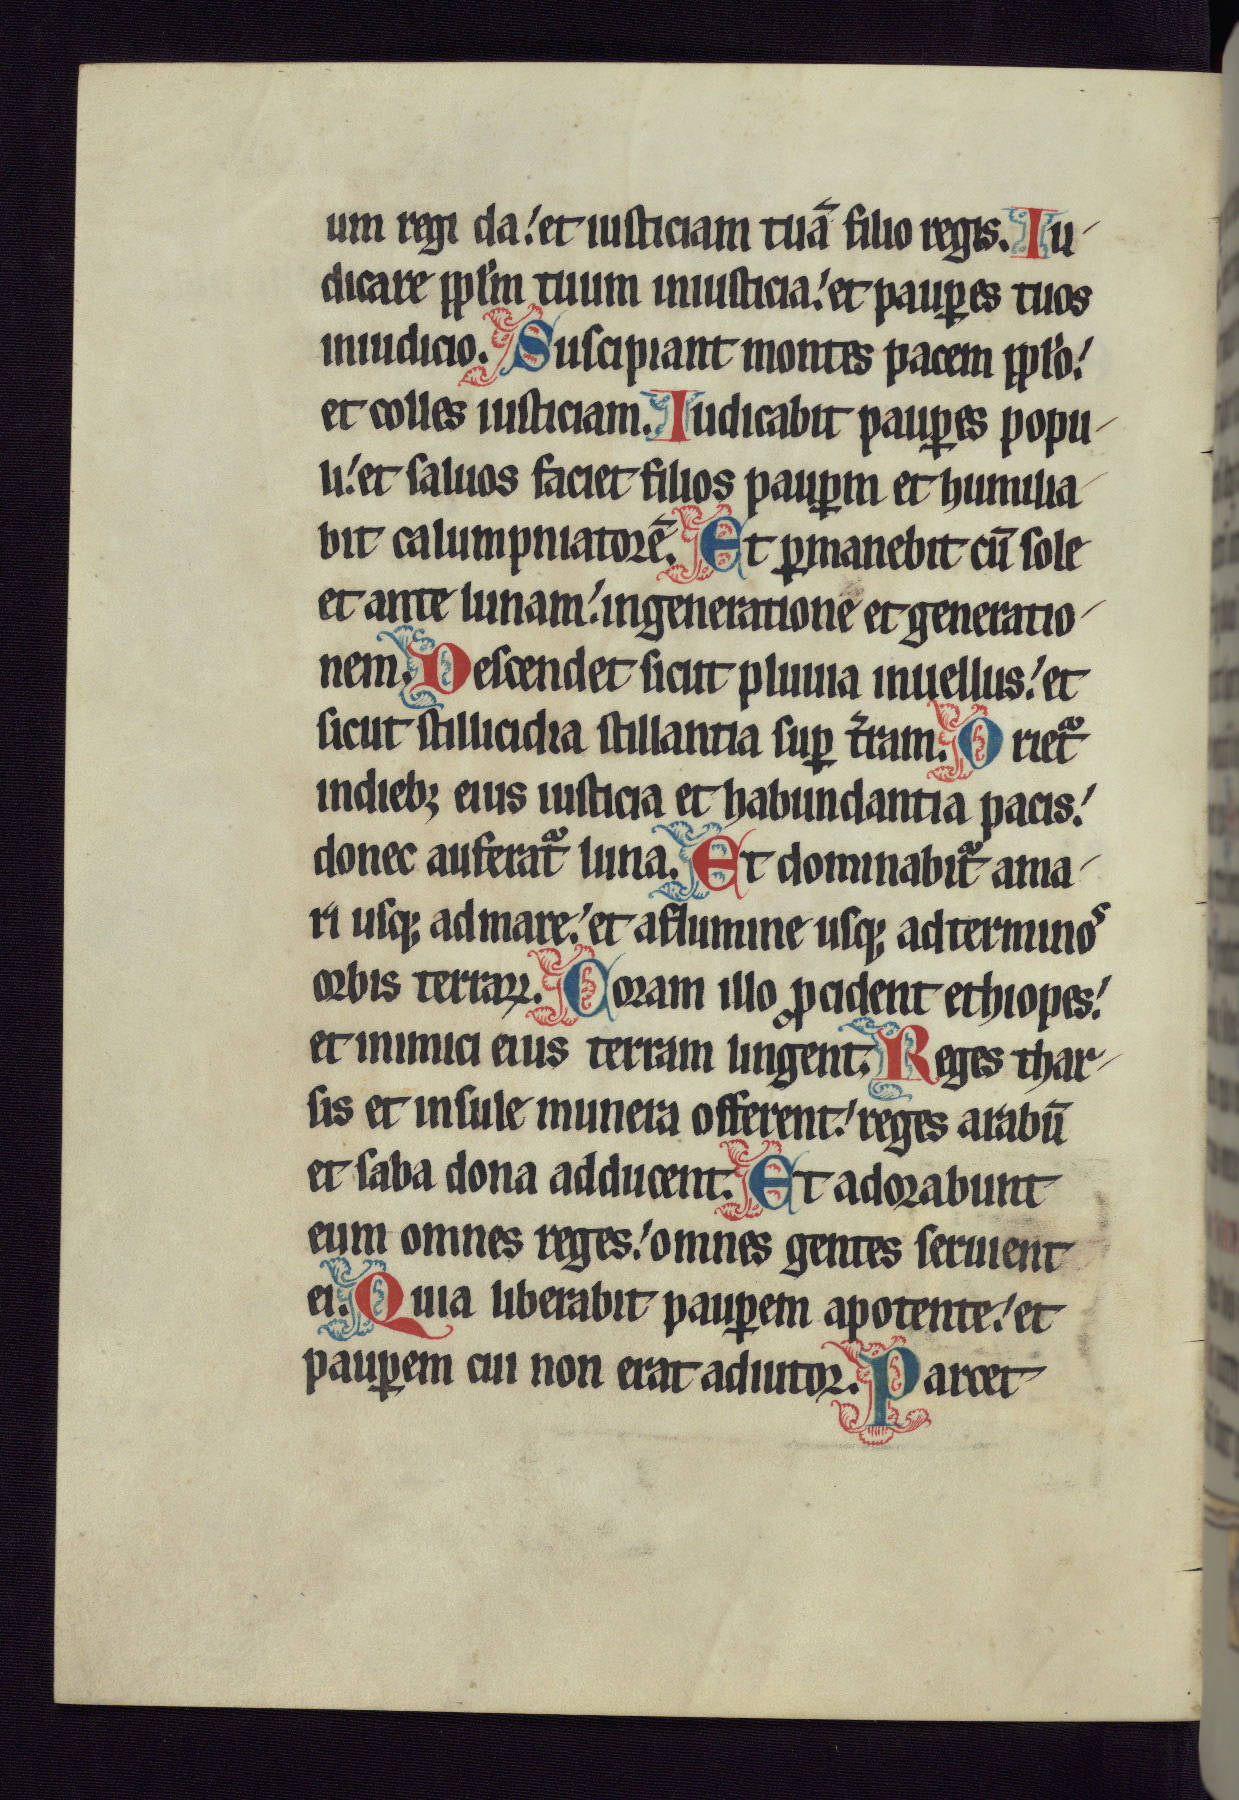 um regi da. et iusticiam tuā filio regis. Iu-
dicare pp̄l'm tuum iniusticia. et paup̲es tuos
iniudicio. Suscipiant montes pacem pp̄l'o.
et colles iusticiam. Iudicabit paup̲es popu-
li. et saluos faciet filios paup̲m et humilia-
bit calumpniatorē. Et p̲manebit cū sole
et ante lunam. ingeneratione et generatio-
nem. Descendet sicut pluuia inuellus. et
sicut stillicidia stillantia sup̲ t̄ram. Orietᷓ
indieb; eius iusticia et habundantia pacis.
donec auferatᷓ luna. Et dominabitᷓ ama-
ri usq; admare. et aflumine usq; adterminoˢ
orbis terraꝝ. Coram illo ꝓcident ethiopes.
et inimici eius terram lingent. Reges thar-
sis et insule munera offerent. reges arabū
et saba dona adducent. Et adorabunt
eum omnes reges. omnes gentes seruient
ei. Quia liberabit paup̲em apotente. et
paup̲em cui non erat adiutor. Parcet